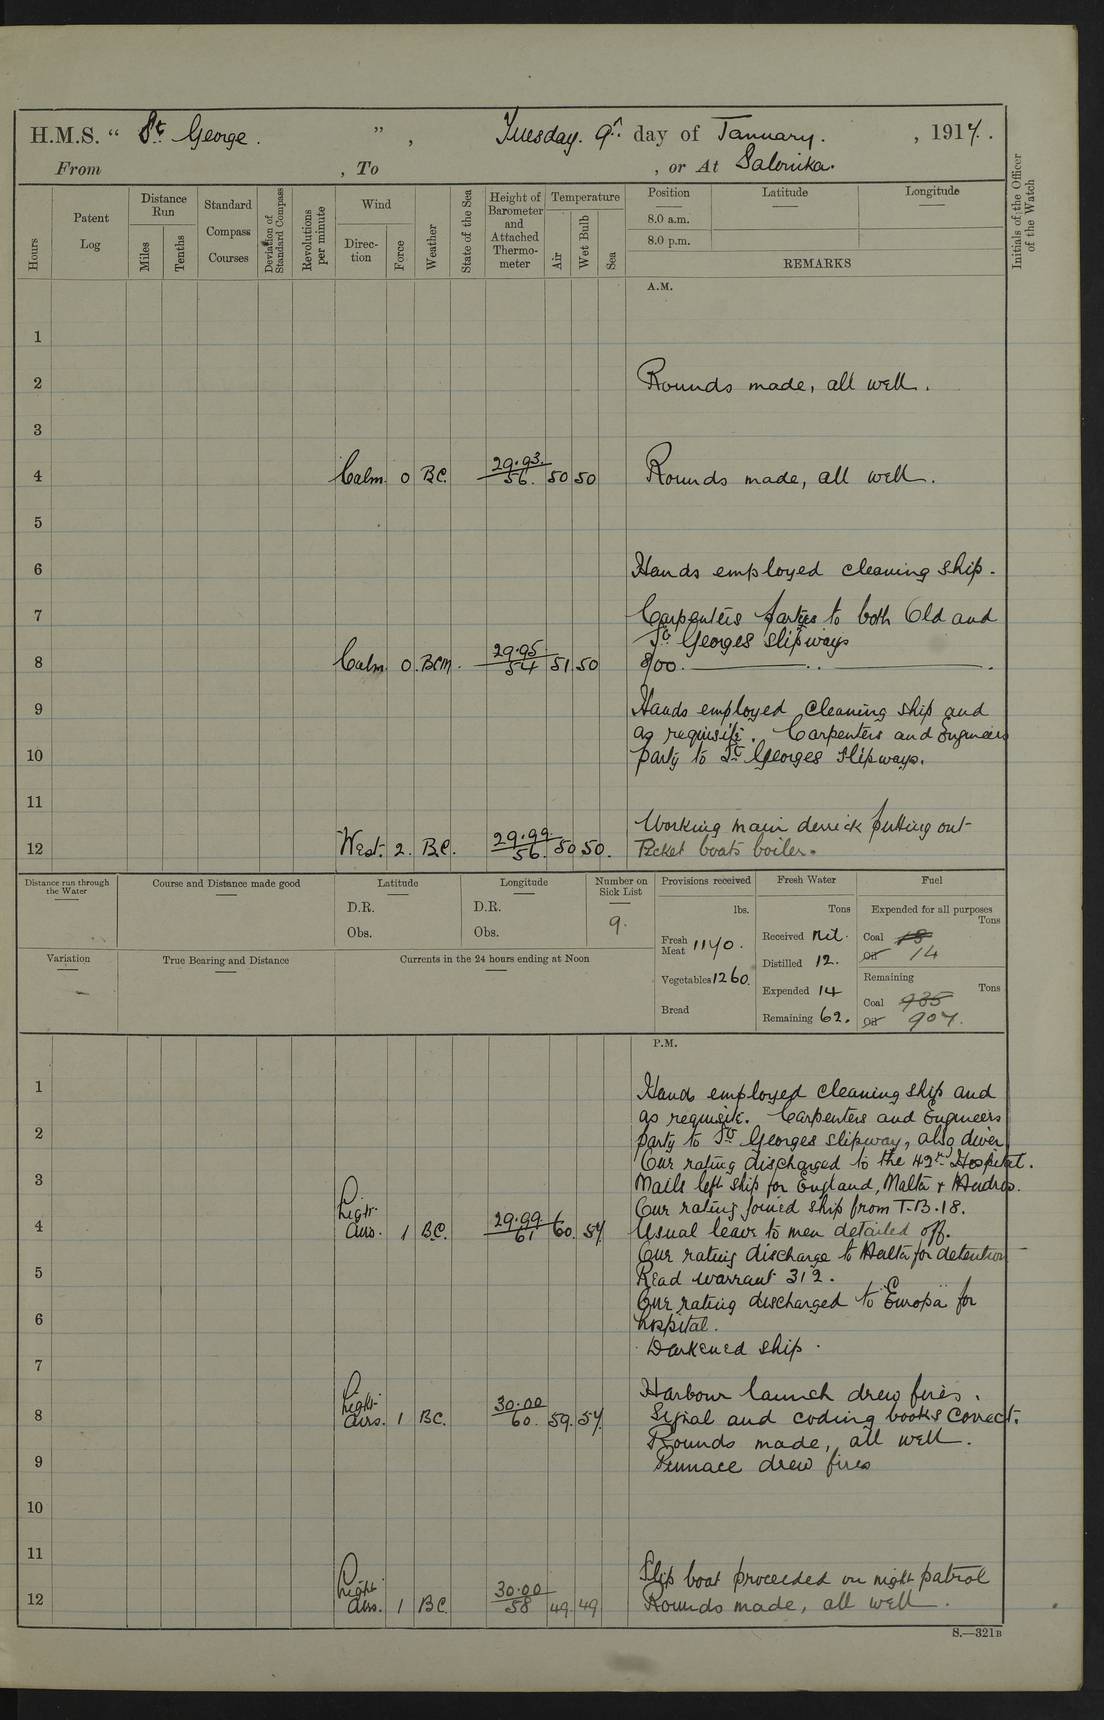 H.M.S. " St George. ", Tuesday. 9th day of January. , 1917.
From , To , or At Salonika.
Hours
Patent Log
Distance Run
Miles
Tenths
Standard Compass Courses
Deviation of Standard Compass
Revolutions per minute
Wind
Direction
Force
Weather
State of the Sea
Height of Barometer and Attached Thermometer
Temperature
Air
Wet Bulb
Sea
Position
8.0 a.m.
8.0 p.m.
Latitude
Longitude
REMARKS
Initials of the Officer of the Watch
A.M.
1
2 Rounds made, all well.
3
4 Calm. 0 B.C. 29.93. 56. 50 50 Rounds made, all well.
5
6 Hands employed cleaning ship.
7 Carpenters parties to both Old and
St Georges slipways
8 Calm 0. BCM. 29.95 54 51 50 8.00.
9 Hands employed cleaning ship and
as requisite. Carpenters and Engineers
10 party to St Georges slipways.
11
Working main derrick putting out
12 West. 2. B.C. 29.99. 56. 50 50. Picket boats boiler.
Distance run through the Water
Course and Distance made good
Latitude
D.R.
Obs.
Longitude
D.R.
Obs.
Number on Sick List
9.
Provisions received
lbs.
Fresh Meat 1140.
Vegetables 1260.
Bread
Fresh Water
Tons
Received Nil.
Distilled 12.
Expended 14
Remaining 62.
Fuel
Expended for all purposes
Tons
Coal 18
Oil 14
Remaining
Tons
Coal 935
Oil 907.
Variation
True Bearing and Distance
Currents in the 24 hours ending at Noon
P.M.
1 Hands employed cleaning ship and
as requisite. Carpenters and Engineers
2 party to St Georges slipway, also diver.
One rating discharged to the 42nd Hospital.
3 Mails left ship for England, Malta & Mudros.
One rating joined ship from T.B.18.
4 Light airs. 1 B.C. 29.99 61 60. 57. Usual leave to men detailed off.
One rating discharge to Malta for detention
5 Read warrant 312.
One rating discharged to "Europa" for
6 hospital.
Darkened ship.
7
Harbour launch drew fires.
8 Light airs. 1 BC. 30.00 60. 59. 57. Signal and coding books correct.
Rounds made, all well.
9 Pinnace drew fires
10
11
Slip boat proceeded on night patrol
12 Light airs. 1 BC 30.00 58 49. 49 Rounds made, all well.
S.—321B